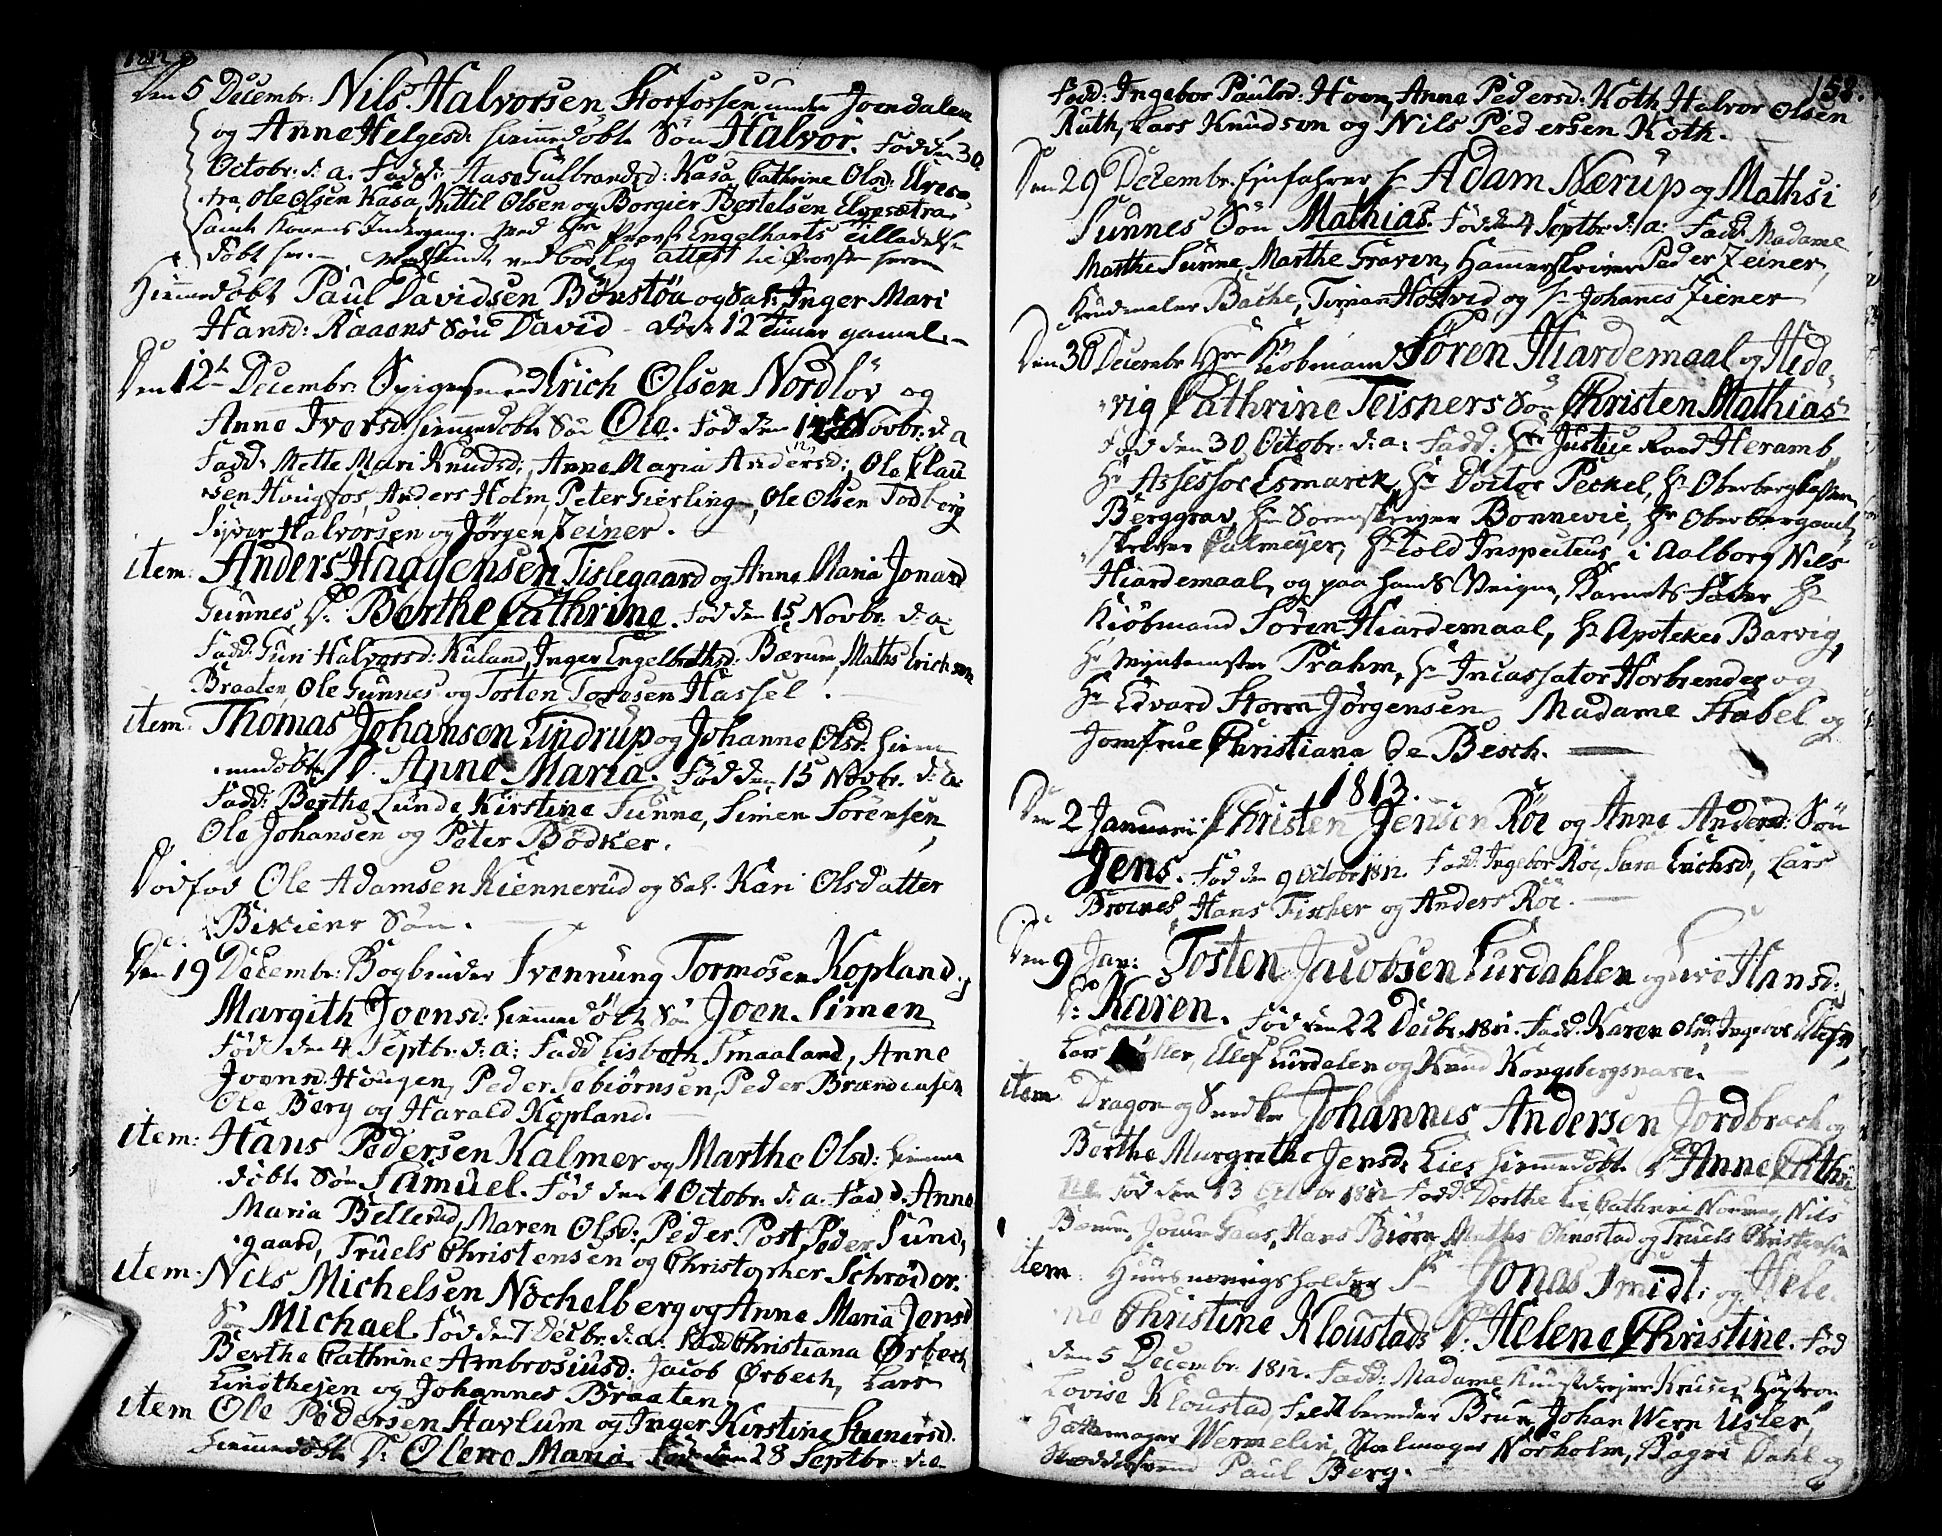 1812
Den 5 Decembr: Nils Halvorsen Storfossen under Joendalen
og Anne Helgesd: hiemmedøbte Søn Halvor. Fød den 30
Octobr: d: a. Fadd: Aase Gulbrandsd: Kasa, Cathrine Olsd: Elvese-
tra, Ole Olsen Kasa, Kittil Olsen og Borgier Bertelsen Elvesetra
samt Konens Indergang. med Hr Provst Engelharts Tilladelse
døbt her. attest til Provsten
Hiemmedøbt Paul Davidsen Bønstøa og Sal: Inger Mari
Hansd: Raaens Søn David - døde 12 Timer gamel.
Den 12te Decembr: Spigersmed Erich Olsen Nordløv og
Anne Iversd: hiemmedøbte Søn Ole. Fød den Novbr: d: a
Fadd: Mette Mari Knudsd:, Anne Maria Andersd:, Ole Clau
sen Houigfos, Anders Holm, Peter Gierling, Ole Olsen Todberg
Siver Halvorsen og Jørgen Zeiner.
item: Anders Haagensen Tislegaard og Anne Maria Jonasd
Gunnes D: Berthe Cathrine. Fød den 15 Novbr: d: a:
Fadd: Guri Halvorsd: Ruland, Inger Engelbrethsd: Bærum, Maths Erichsen
Braaten, Ole Gunnes og Tosten Toresen Hassel.
item: Thomas Johansen Lindrup og Johanne Olsd: hiem
medøbte D: Anne Maria. Fød den 15 Novbr: d: a:
Fadd: Berthe Lunde, Kirstine Sunne, Simen Sørensen,
Ole Johansen og Peter Bødker.
Dødfød Ole Adamsen Kiennerud og Sal: Kari Olsdatter
Bikiens Søn.
Den 19 Decembr: Bogbinder Svennung Tormosen Kopland og
Margith Joensd: hiemmedøbt Søn Joen Simen
Fød den 4 Septbr: d: a: Fadd Lisbeth Smaaland, Anne
Joensd: Hougen, Peder Sebiørnsen, Peder Brændensen
Ole Berg og Harald Kopland.
item: Hans Pedersen Kalmer og Marthe Olsd: hiemme
døbte Søn Samuel. Fød den 1 Octobr: d: a. Fadd: Anne
Maria Bellerud, Maren Olsd:, Peder Post, Peder Sund,
gaard, Truels Christensen og Christopher Schrøder.
item: Nils Michelsen Nochelberg og Anne Maria Jensd
Søn Michael Fød den 7 Decbr: d: a: Fadd Christiana Ørbech
Berthe Cathrine Ambrosiusd: Jacob Ørbech, Lars
Linothejen og Johannes Braaten.
item Ole Pedersen Havlum og Inger Kirstine Steenersd:
hiemmedøbte D: Olene Maria Fød den 28 Septbr: d: a
158.
Fadd: Ingebor Paulsd: Hoen, Anne Pedersd: Koth Halvor Olsen
Ruth, Lars Knudsen og Nils Pedersen Koth.
Den 29 Decembr: Hr Adam Nærup og Mathsi
Sunnes Søn Mathias. Fød den 4 Septbr: d: a: Fadd: Madame
Marthe Sunne, Marthe Graven, Hammerskriver Peder Zeiner,
Bache, Timan Hostvid, og Hr Johannes Ziener
Den 30 Decembr Hr Kiøbmand Søren Hiardemaal og Hede-
vig Cathrine Teisners Søn Christen Mathias
Fød den 30 Octobr: d: a: Fadd: Hr Justice Raad Heramb
Hr Assessor Esmarck, Hr Doctor Peckel, Hr Oberbergkasserer
Berggrav, Hr Sorenskriver Bonnevie, Hr Oberbergamts
skriver Calmeyer, Hr Told Inspecteur i Aalborg Nils
Hiardemaal, og paa hans Vegne, Barnets Fader Hr
Kiøbmand Søren Hiardemaal, Hr Apoteker Barvig,
Hr Myntemster Prahm, Hr Incassator Horbrender og
Hr Edvard Storm Jørgensen Madame Stabel og
Jomfrue Christiana De Besch.
1813.
Den 2 Januarii Christen Jensen Röe og Anne Andersd: Søn
Jens. Fød den 9 Octobr 1812. Fadd: Ingebor Röe, Sara Erichsd:, Lars
Broenes, Hans Fischer og Anders Röe.
Den 9 Jan: Tosten Jacobsen Lurdahlen og Guri Hansd:
D: Karen. Fød den 22 Decbr. 1812. Fadd: Karen Olsd:, Ingebor Ellefsd,
Lars , Ellef Lurdalen og Knud Kongsbergsnare
item Dragon og Snedker Johannes Andersen Jordbrech og
Berthe Margrethe Jensd: Lies hiemmedøbte D: Anne Cathri
ne Fød den 13 Octobr 1812 Fadd: Dorthe Lie, Cathrine , Nils
Bærum, Hans Biørn, Maths Ohnestad og Truels Christensen
item: Huusnæringsholder Hr Jonas Smidt og Hele-
ne Christine Kloustads D: Helene Christine. Fød
den 5 Decembr: 1812. Fadd: Madame Kunstdrejer Kruse, Høystrøm
Lovise Kloustad, Feldtbereder Bruun, Johan Wern Usler,
Hattemager Wermelin, Stolmager Norholm, Bager Dahl og
Skræddersvend Paul Berg.